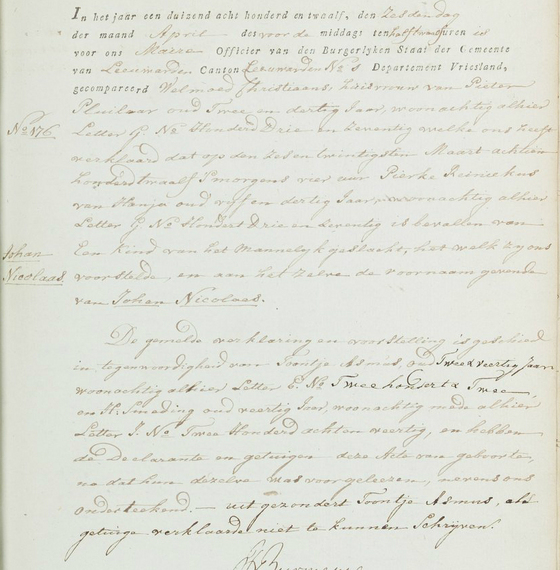 In het jaar een duizend acht honderd en twaalf, den Zesden dag
der maand April des voor de middags ten half twaalf uren is
voor ons Maire Officier van den Burgerlyken Staat der Gemeente
van Leeuwarden Canton Leeuwarden No 1 Departement Vriesland,
gecompareerd Welmoed Christiaans, huisvrouw van Pieter
oud Twee en dertig Jaar, woonachtig alhier
No 176.
Letter G No Honderd Drie en Zeventig welke ons heeft
verklaard dat op den Zes en twintigsten Maart achtien
honderd twaalf 's morgens vier uur Pierke
van oud vijf en dertig Jaar, woonachtig alhier
Letter G No Hondert Drie en Zeventig is bevallen van
Johan
Nicolaas.
Een Kind van het Mannelyk geslacht, het welk zy ons
voorstelde, en aan het zelve de voornaam gevende
van Johan Nicolaas.
De gemelde verklaring en voorstelling is geschied
in tegenwoordigheid van Toontje Asmus, oud Twee & veertig Jaar
woonachtig alhier Letter E. No Twee hondert & Twee
en H. Smeding oud veertig Jaar, woonachtig mede alhier
Letter I. No Twee Honderd acht en veertig, en hebben
de Declarante en getuigen deze Acte van geboorte,
na dat hun dezelve was voorgeleezen, nevens ons
ondertekend. — uitgezondert Toontje Asmus, als
getuige verklaarde niet te kunnen Schrijven.